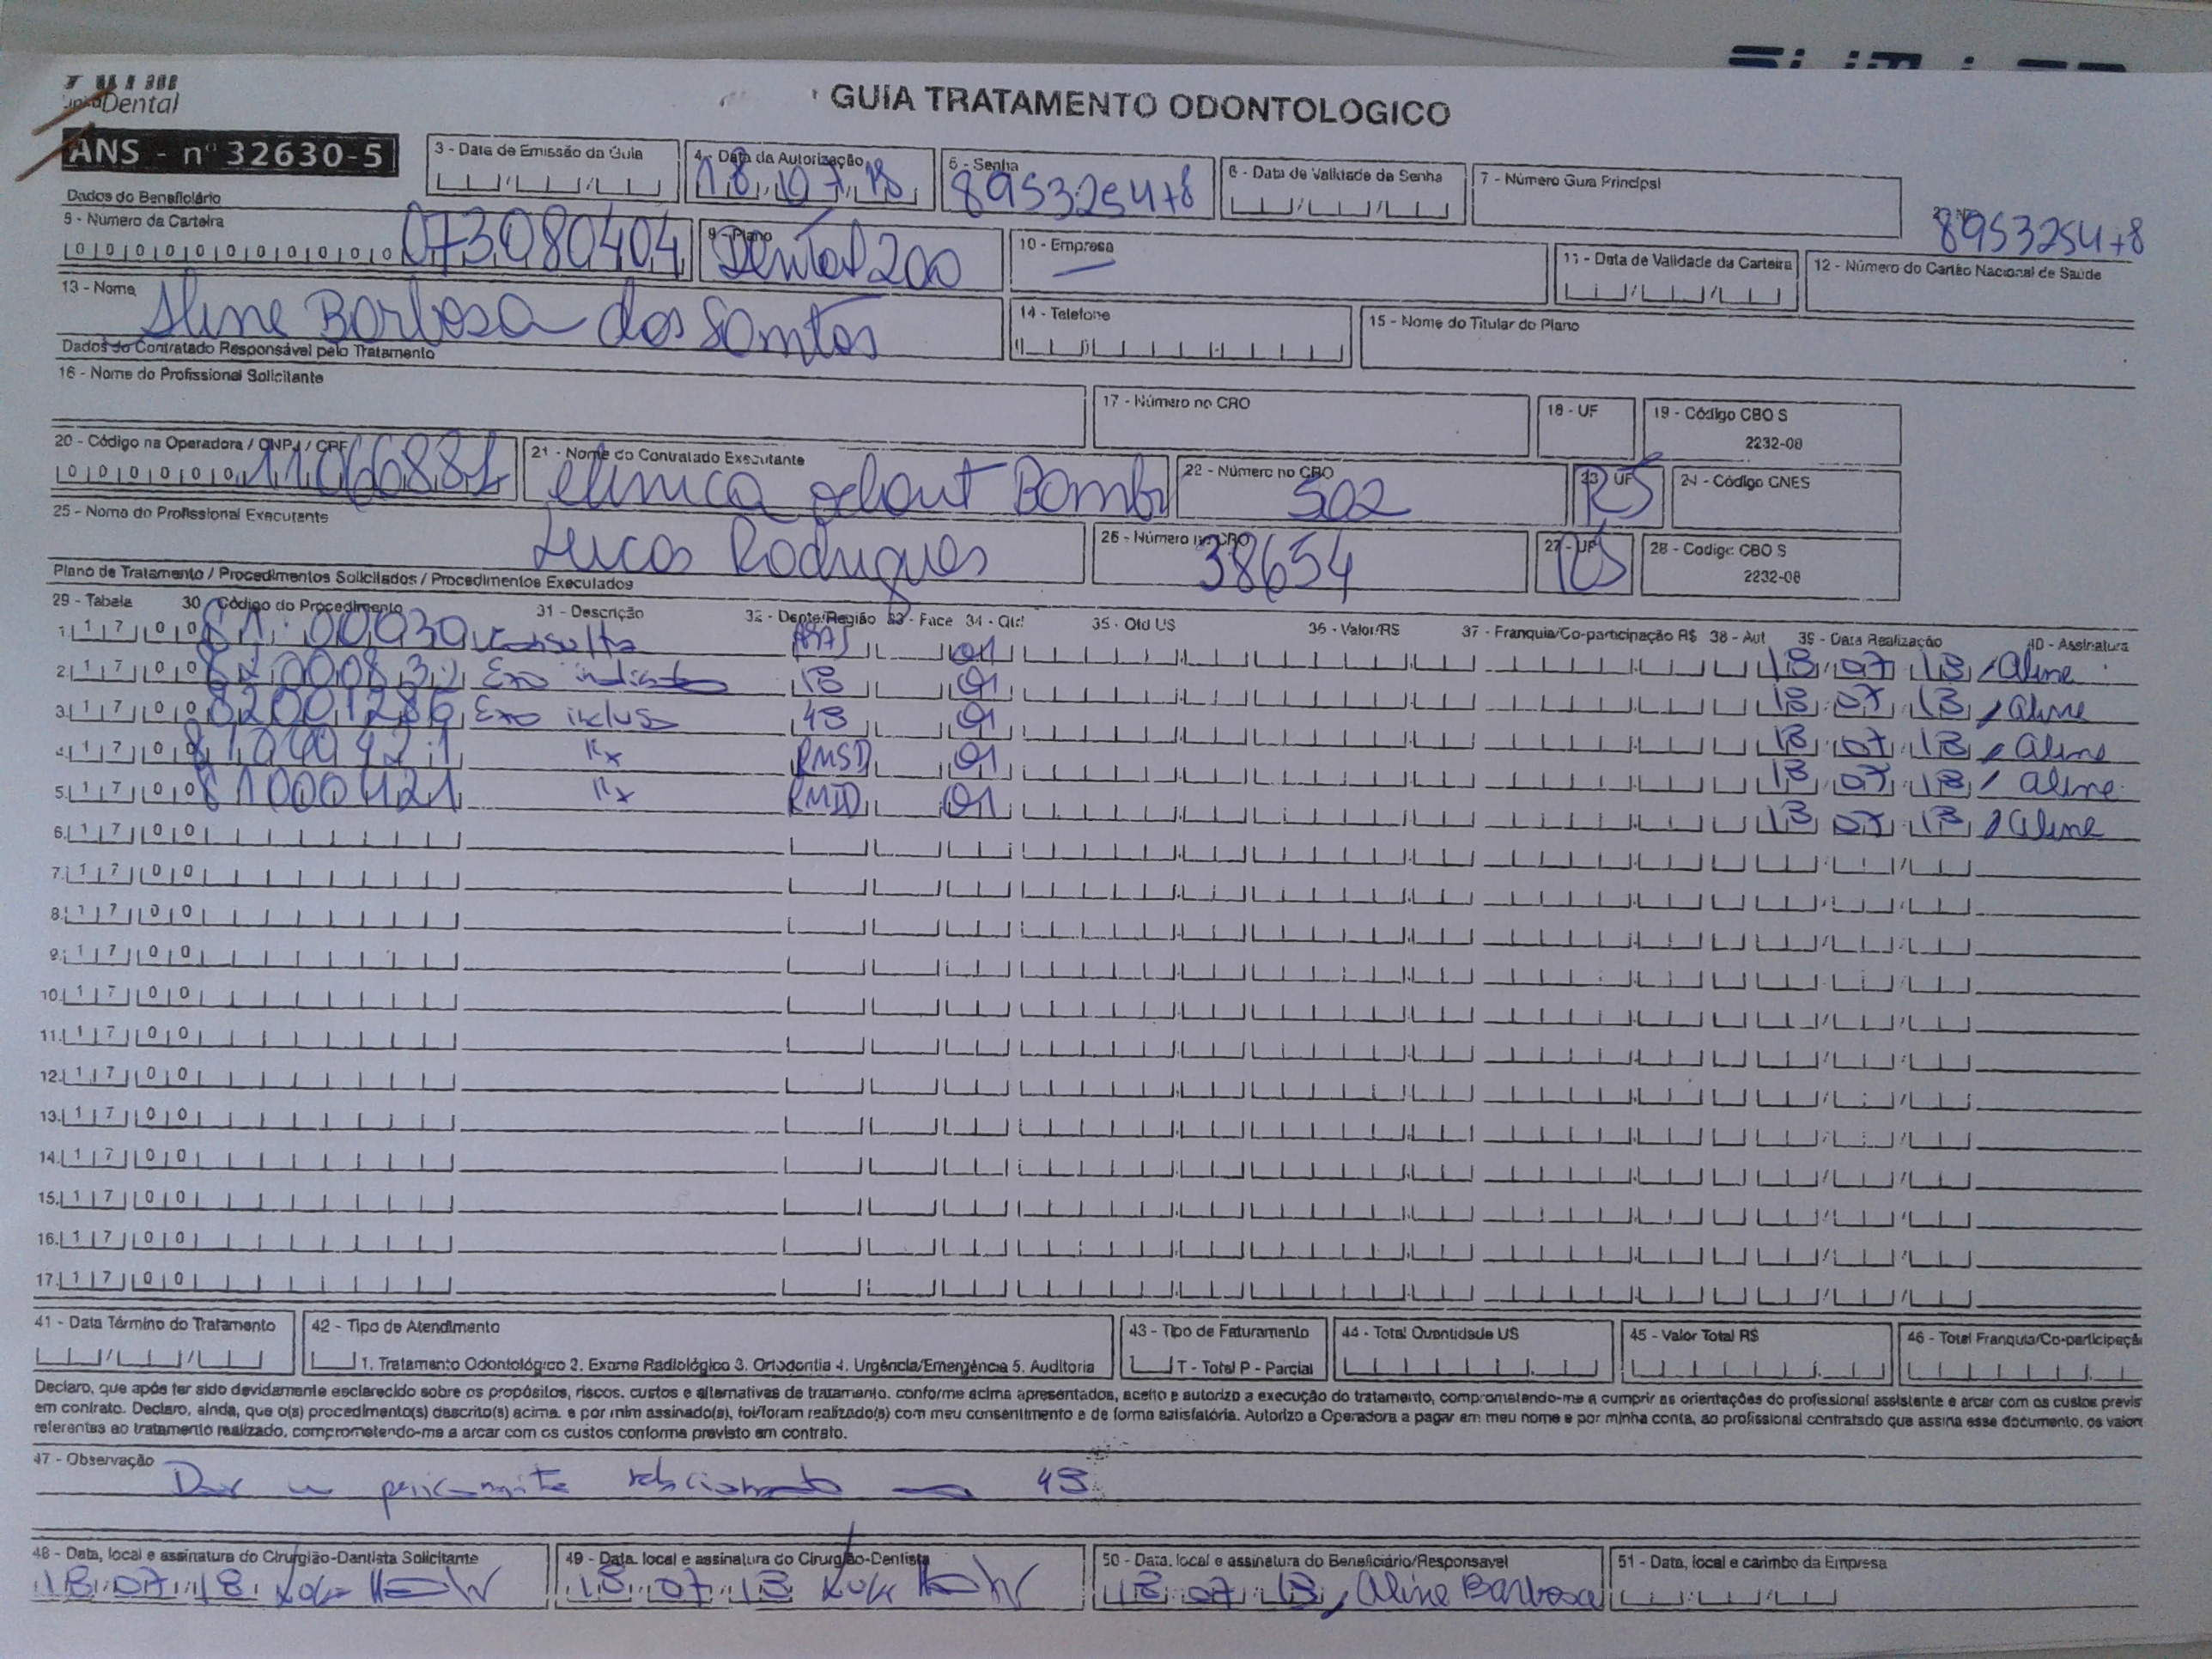 Dental
GUIA TRATAMENTO ODONTOLOGICO
ANS - nº 32630-5
3 - Data de Emissão da Guia
4 - Data da Autorização 18 07 18
5 - Senha 89532547+8
6 - Data de Validade da Senha
7 - Número Guia Principal
8953254+8
Dados do Beneficiário
9 - Número da Carteira 0 0 0 0 0 0 0 0 0 0 0 073080404
9 - Plano Dental 200
10 - Empresa
11 - Data de Validade da Carteira
12 - Número do Cartão Nacional de Saúde
13 - Nome Aline Barbosa dos Santos
14 - Telefone
15 - Nome do Titular do Plano
Dados do Contratado Responsável pelo Tratamento
16 - Nome do Profissional Solicitante
17 - Número no CRO
18 - UF
19 - Código CBO S 2232-08
20 - Código na Operadora / CNPJ / CPF 0 0 0 0 0 0
21 - Nome do Contratado Executante Clinica
22 - Número no CRO 502
23 - UF RS
24 - Código CNES
25 - Nome do Profissional Executante Lucas Rodrigues
26 - Número no CRO 38654
27 - UF RS
28 - Codigo CBO S 2232-08
Plano de Tratamento / Procedimentos Solicitados / Procedimentos Executados
29 - Tabela 30 - Código do Procedimento 31 - Descrição 32 - Dente/Região 33 - Face 34 - Qtd 35 - Qtd US 36 - Valor/R$ 37 - Franquia/Co-participação R$ 38 - Aut 39 - Data Realização 40 - Assinatura
1. 1 7 0 0 81000030 Consulta 01 18 07 18 Aline
2. 1 7 0 0 Exo 18 01 18 07 18 Aline
3. 1 7 0 0 82001286 Exo incluso 48 01 18 07 18 Aline
4. 1 7 0 0 81000421 Rx RMSD 01 18 07 18 Aline
5. 1 7 0 0 81000421 Rx RMID 01 18 07 18 Aline
6. 1 7 0 0
7. 1 7 0 0
8. 1 7 0 0
9. 1 7 0 0
10. 1 7 0 0
11. 1 7 0 0
12. 1 7 0 0
13. 1 7 0 0
14. 1 7 0 0
15. 1 7 0 0
16. 1 7 0 0
17. 1 7 0 0
41 - Data Término do Tratamento
42 - Tipo de Atendimento
1. Tratamento Odontológico 2. Exame Radiológico 3. Ortodontia 4. Urgência/Emergência 5. Auditoria
43 - Tipo de Faturamento
T - Total P - Parcial
44 - Total Quantidade US
45 - Valor Total R$
46 - Total Franquia/Co-participaçã
Declaro, que após ter sido devidamente esclarecido sobre os propósitos, riscos, custos e alternativas de tratamento, conforme acima apresentados, aceito e autorizo a execução do tratamento, comprometendo-me a cumprir as orientações do profissional assistente e arcar com os custos previs
em contrato. Declaro, ainda, que o(s) procedimento(s) descrito(s) acima, e por mim assinado(s), foi/foram realizado(s) com meu consentimento e de forma satisfatória. Autorizo a Operadora a pagar em meu nome e por minha conta, ao profissional contratado que assina esse documento, os valore
referentes ao tratamento realizado, comprometendo-me a arcar com os custos conforme previsto em contrato.
47 - Observação
Dor pericoronarite 48
48 - Data, local e assinatura do Cirurgião-Dentista Solicitante
18 07 18
49 - Data, local e assinatura do Cirurgião-Dentista
18 07 18
50 - Data, local e assinatura do Beneficiário/Responsavel
18 07 18, Aline Barbosa
51 - Data, local e carimbo da Empresa